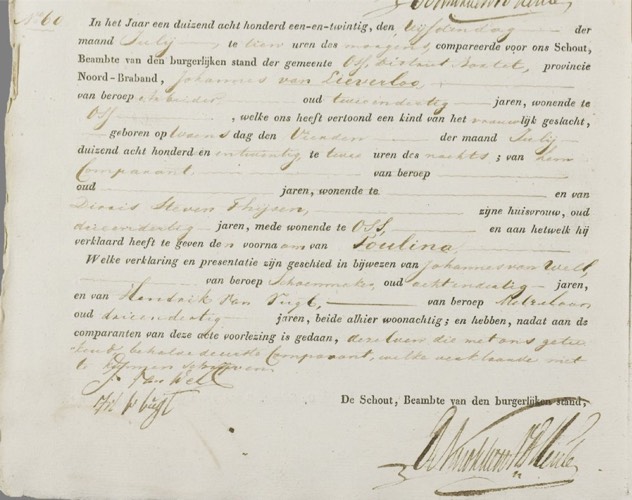 No 60
In het Jaar een duizend acht honderd een-en-twintig, den Vijfden dag der
maand Julij te tien uren des morgens compareerde voor ons Schout,
Beambte van den burgerlijken stand der gemeente Oss, District Boxtel, provincie
Noord-Braband, Johannes van Lieverloo,
van beroep Arbeider oud twee en dertig jaren, wonende te
Oss, welke ons heeft vertoond een kind van het vrouwlijk geslacht,
geboren op woens dag den Vierden der maand Julij
duizend acht honderd en een twintig te twee uren des nachts; van den
Comparant van beroep
oud jaren, wonende te en van
Steven Thijsen, zijne huisvrouw, oud
drie en dertig jaren, mede wonende te Oss, en aan hetwelk hij
verklaard heeft te geven den voornaam van Poulina
Welke verklaring en presentatie zijn geschied in bijwezen van Johannes van Well
van beroep Schoenmaker, oud acht en dertig jaren,
en van Hendrik van Vugt, van beroep Metselaar
oud drie en dertig jaren, beide alhier woonachtig; en hebben, nadat aan de
comparanten van deze acte voorlezing is gedaan, dezelven die met ons getee
kend behalve de eerste Comparant, welke verklaarde niet
te kunnen schrijven
J. van Well
H v Vugt
De Schout, Beambte van den burgerlijken stand,